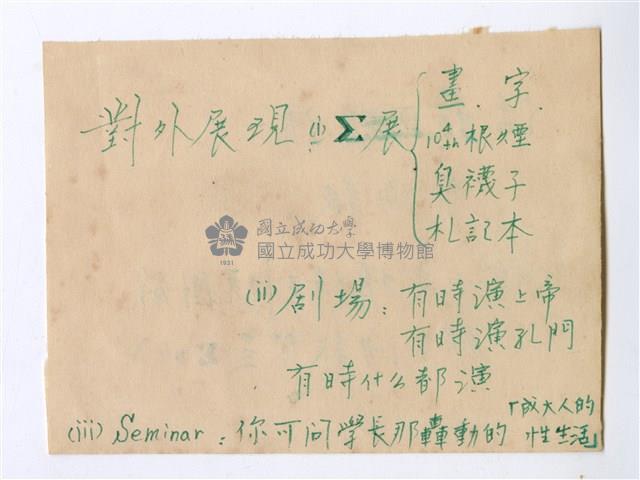 對外展現 (i) Σ展 { 畫．字．
10⁴th 根煙
臭襪子
札記本
國立成功大學
國立成功大學博物館
1931
(ii) 剧場：有時演上帝
有時演孔門
有時什么都演
(iii) Seminar：你可问學長那轟動的「成大人的
性生活」